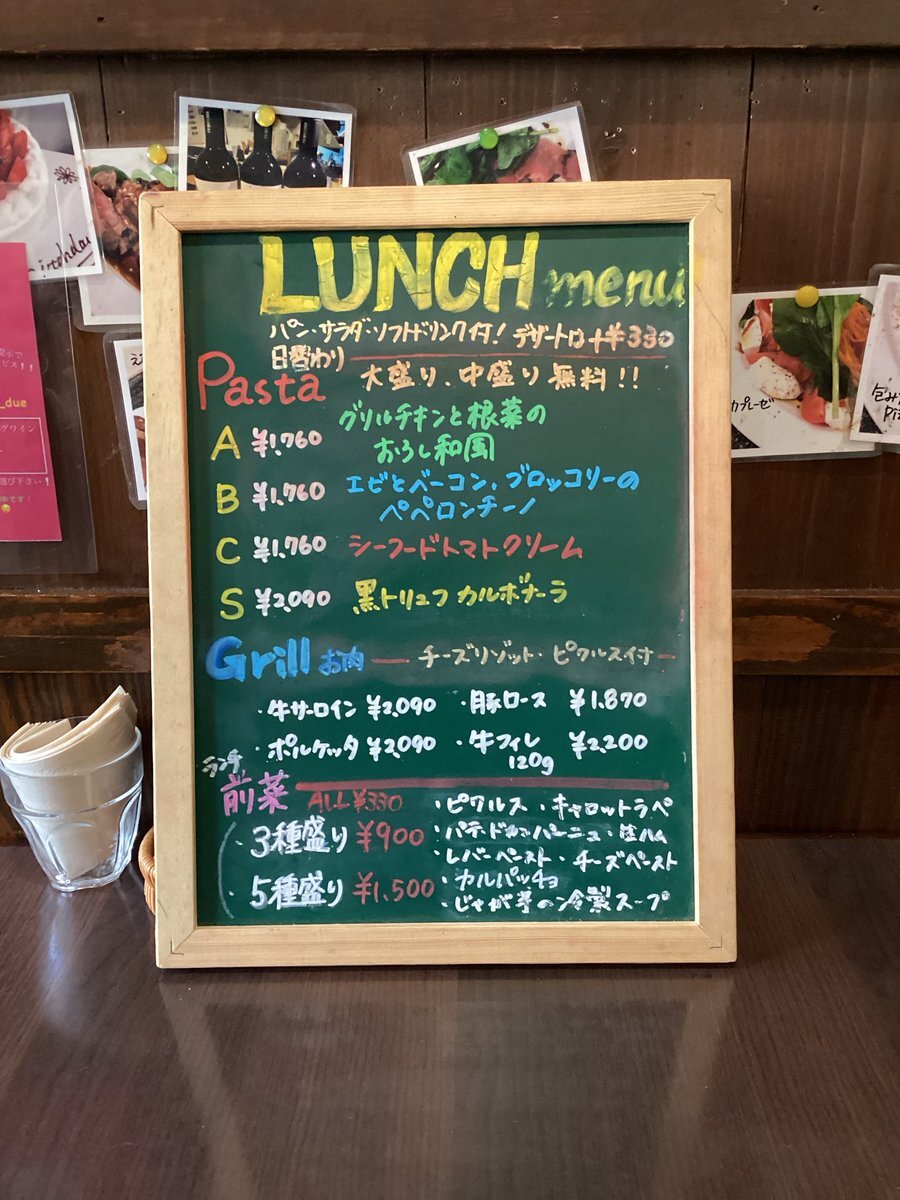 LUNCH menu
パン・サラダ・ソフトドリンク付! デザートは+¥330
日替わり
Pasta 大盛り、中盛り無料!!
A ¥1,760 グリルチキンと根菜の
おろし和風
B ¥1,760 エビとベーコン、ブロッコリーの
ペペロンチーノ
C ¥1,760 シーフードトマトクリーム
S ¥2,090 黒トリュフカルボナーラ
Grill お肉 チーズリゾット・ピクルス付
・牛サーロイン ¥2,090 ・豚ロース ¥1,870
・ポルケッタ ¥2,090 ・牛フィレ ¥2,200
120g
ランチ
前菜 ALL ¥330 ・ピクルス ・キャロットラペ
・3種盛り ¥900 ・パテドカンパーニュ ・生ハム
・レバーペースト ・チーズペースト
・5種盛り ¥1,500 ・カルパッチョ
・じゃが芋の冷製スープ
カプレーゼ
_due